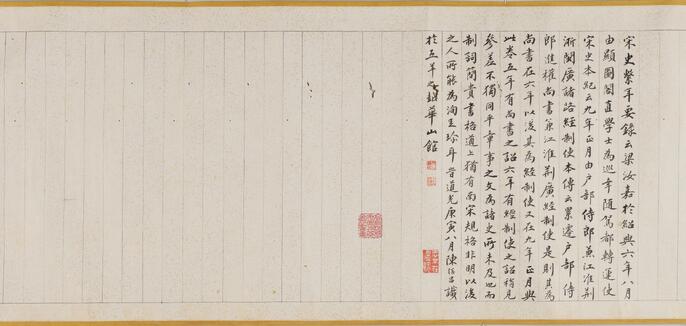 宋史繫年要錄云梁汝嘉於紹興六年八月
由顯謨閣直學士為巡幸隨駕都轉運使
宋史本紀云九年正月由戶部侍郎兼江淮荆
浙閩廣諸路經制使本傳云累遷戶部侍
郎進權尚書兼江淮荆廣經制使是則其為
尚書在六年以後其為經制使又在九年正月與
此卷五年有尚書之詔六年有經制使之詔稍見
參差不獨同平章事之文為諸史所未及也而
制詞簡貴書格遒上猶有南宋規格非明以後
之人所能為洵至珍耳 昔道光庚寅八月陳
識
於五羊之越華山館